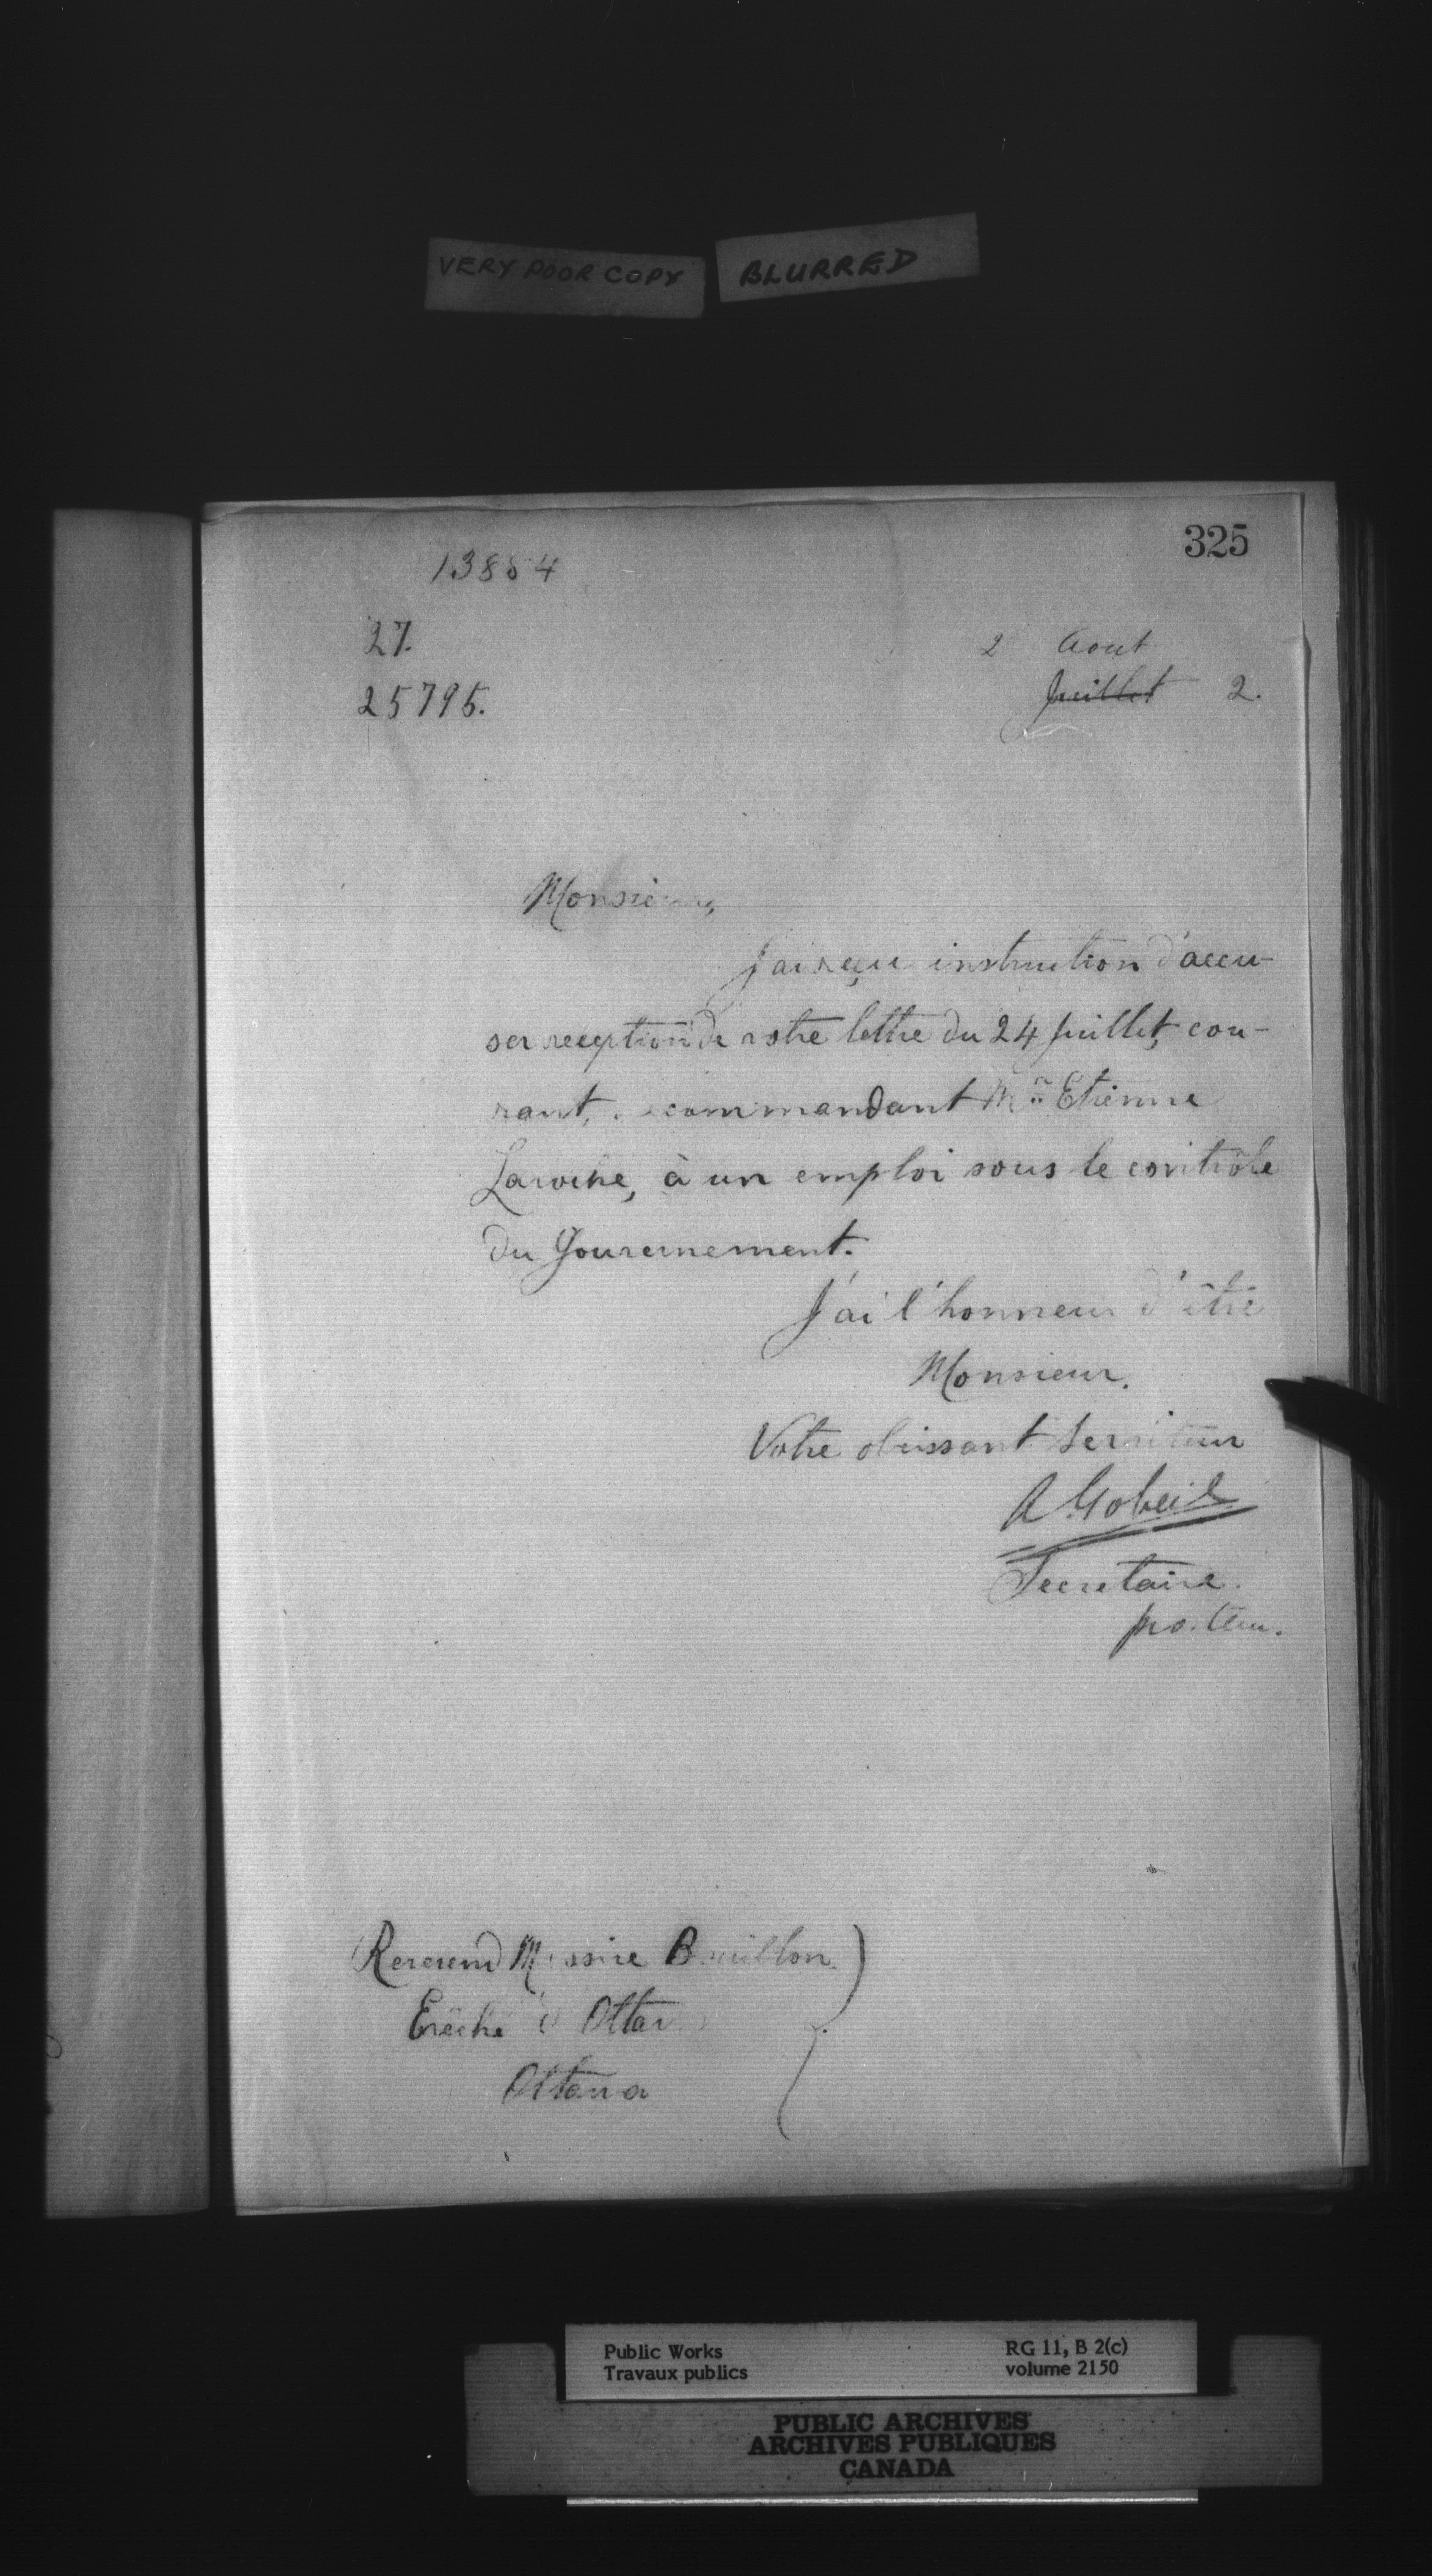 VERY POOR COPY BLURRED
325
13854
27.
25795.
2 Aout
Juillet 2.
Monsieur,
J'ai reçu instruction d'accu-
ser reception de votre lettre du 24 Juillet, cou-
rant, recommandant Mr. Etienne
Laroche, à un emploi sous le contrôle
du Gouvernement.
J'ai l'honneur d'être
Monsieur.
Votre obeissant Serviteur
A Gobeil
Secretaire.
pro. tem.
Reverend Messire Bouillon.
Evêché d' Ottawa
Ottawa
Public Works
Travaux publics
RG 11, B 2(c)
volume 2150
PUBLIC ARCHIVES
ARCHIVES PUBLIQUES
CANADA